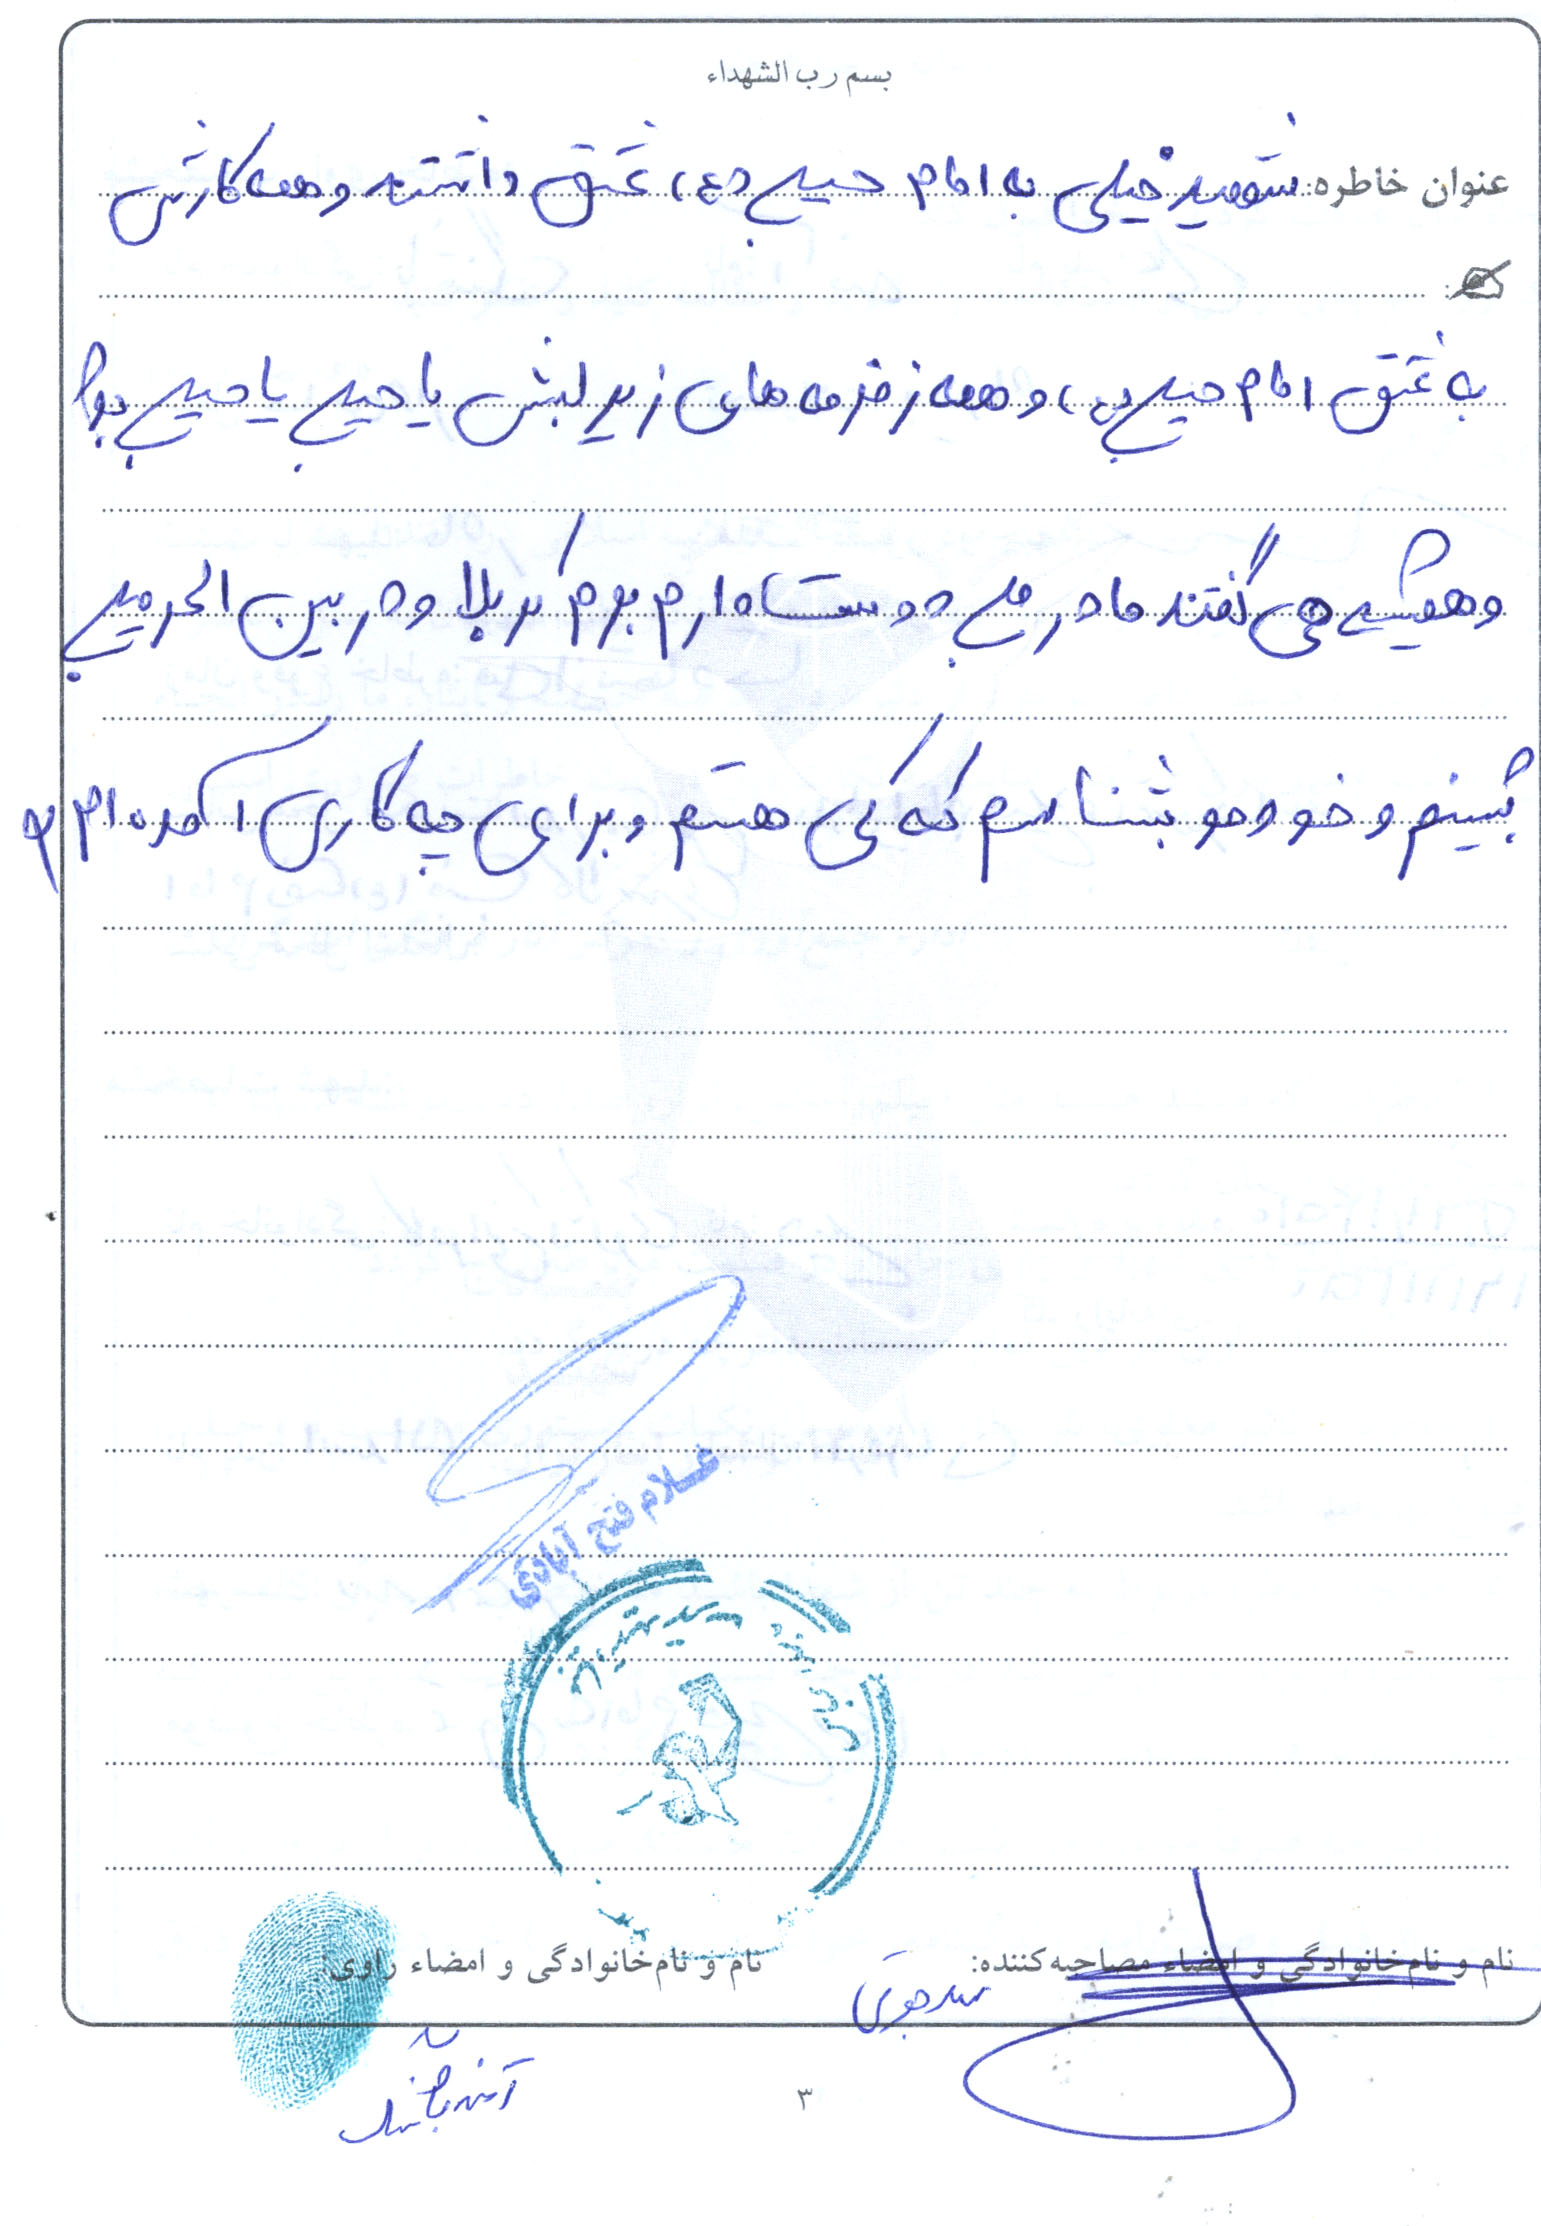 بسم رب الشهداء
عنوان خاطره: شهید خیلی به امام حسین (ع) عشق داشتند و همه کارش
به عشق امام حسین (ع) و همه زمزمه های زیر لبش یا حسین یا حسین بود
و همیشه می گفتند مادر من دوست دارم بروم کربلا و در بین الحرمین
بشینم و خودمو بشناسم که کی هستم و برای چه کاری آمده ام
غلام فتح آبادی
نام و نام‌خانوادگی و امضاء مصاحبه‌کننده:
نام و نام‌خانوادگی و امضاء راوی:
۳